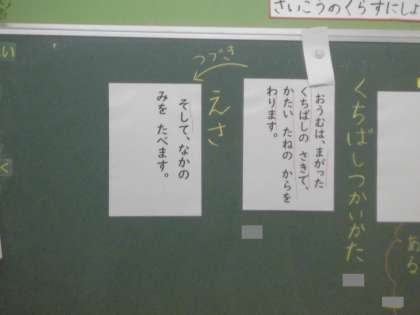 さいこうのくらすにしよ
ある
くちばしつかいかた
おうむは、まがった
くちばしの さきで、
かたい たねの からを
わります。
つづき
えさ
そして、なかの
みを たべます。
い
く